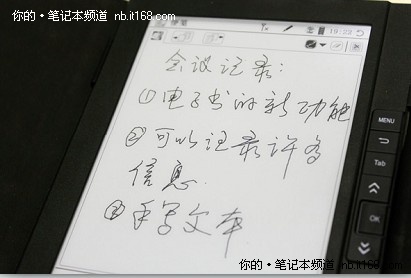 你的·笔记本频道 nb.it168.com
19:22
会议记录:
①电子书的新功能
②可以记录许多
信息.
③手写文本
MENU
Tab
OK
你的·笔记本频道 nb.it168.com